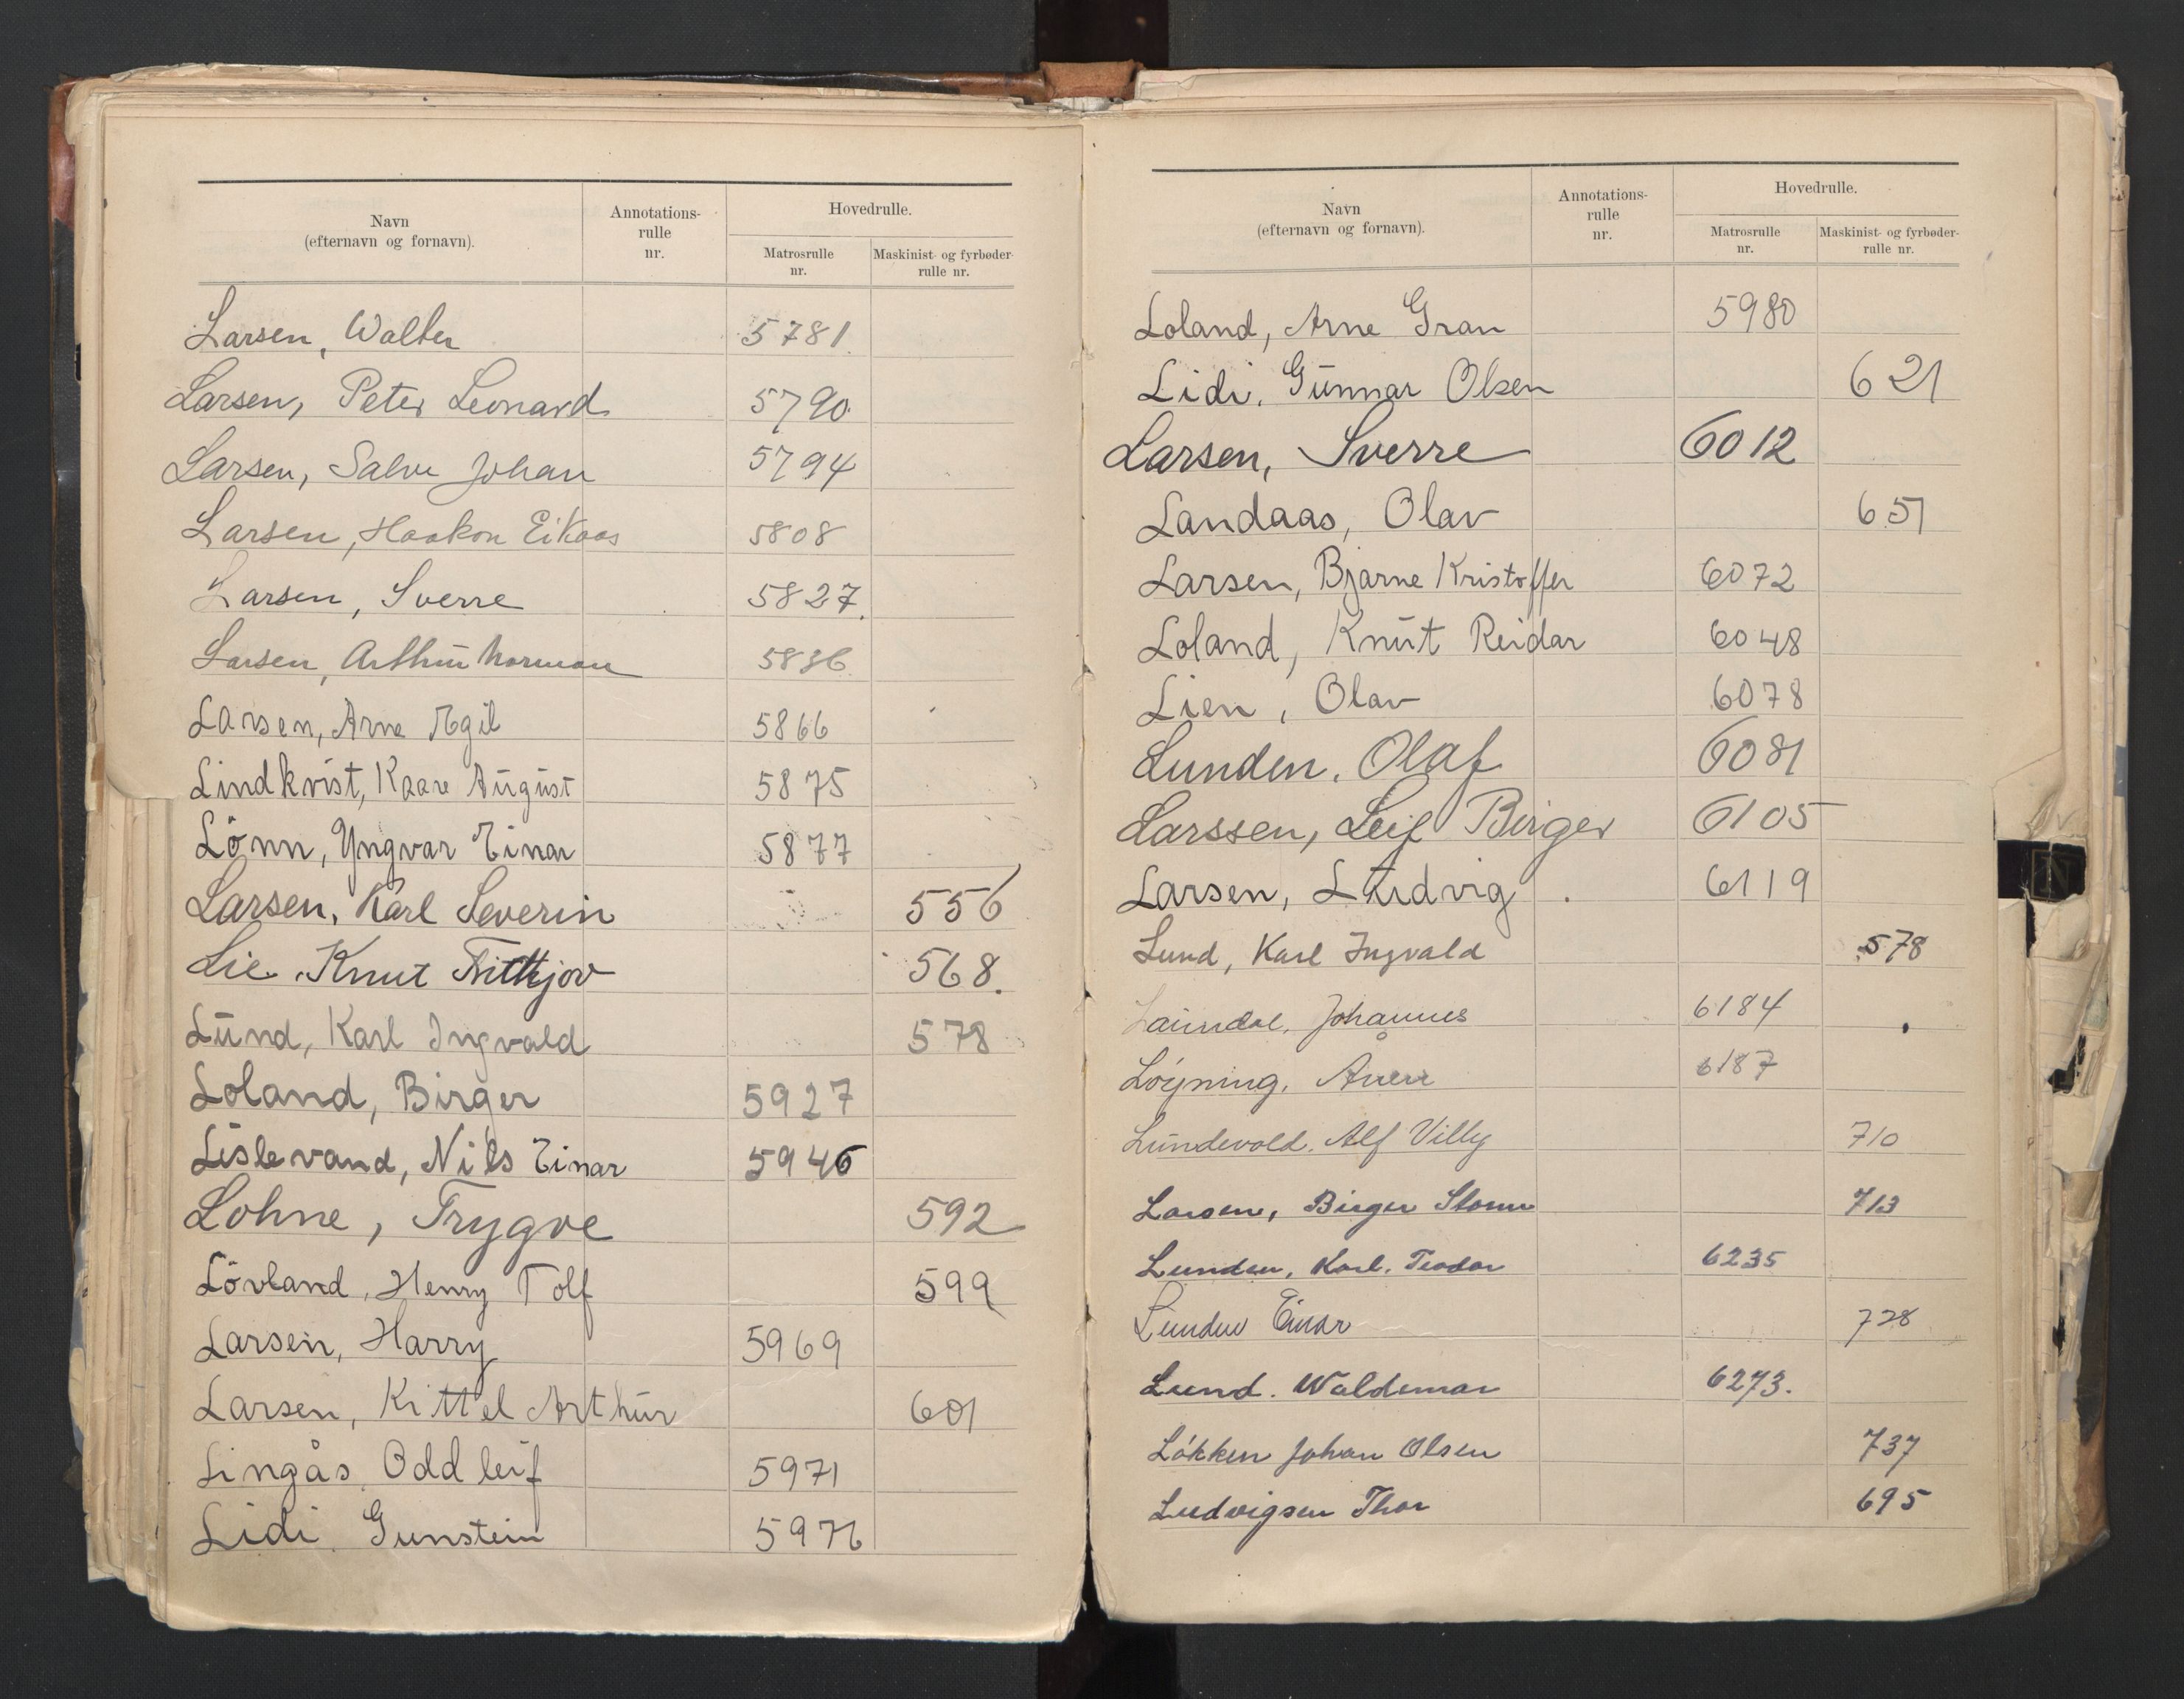 Navn
(efternavn og fornavn).
Annotations-
rulle
nr.
Hovedrulle.
Matrosrulle
nr.
Maskinist- og fyrbøder-
rulle nr.
Larsen, Walter 5781.
Larsen, Peter Leonard 5790.
Larsen, Salve Johan 5794
Larsen, Haakon Eikaas 5808
Larsen, Sverre 5827.
Larsen, Arthur Norman 5836.
Larsen, Arne Egil 5866
Lindkvist, Kaare August 5875
Lönn, Yngvar Einar 5877
Larsen, Karl Severin 556
Lie. Knut Frithjov 568.
Lund, Karl Ingvald 578
Loland, Birger 5927
Lislevand, Nils Einar 5946
Lohne, Trygve 592
Lövland, Henry Tolf 599
Larsen, Harry 5969
Larsen, Kittel Arthur 601
Lingås, Odd leif 5971
Lidi Gunstein 5976
Navn
(efternavn og fornavn).
Annotations-
rulle
nr.
Hovedrulle.
Matrosrulle
nr.
Maskinist- og fyrbøder-
rulle nr.
Loland, Arne Gran 5980
Lidi, Gunnar Olsen 621
Larsen, Sverre 6012
Landaas, Olav 651
Larsen, Bjarne Kristoffer 6072
Loland, Knut Reidar 6048
Lien, Olav 6078
Lunden, Olaf 6081
Larssen, Leif Birger 6105
Larsen, Ludvig 6119
Lund, Karl Ingvald 578
Johannes 6184
Löyning, 6187
Lundevold, Alf Villy 710
Larsen, Birger 713
Lunden, Karl. Teodor 6235
Lunden Einar 728
Lund. Waldemar 6273.
Løkken Johan Olsen 737
Ludvigsen Thor 695